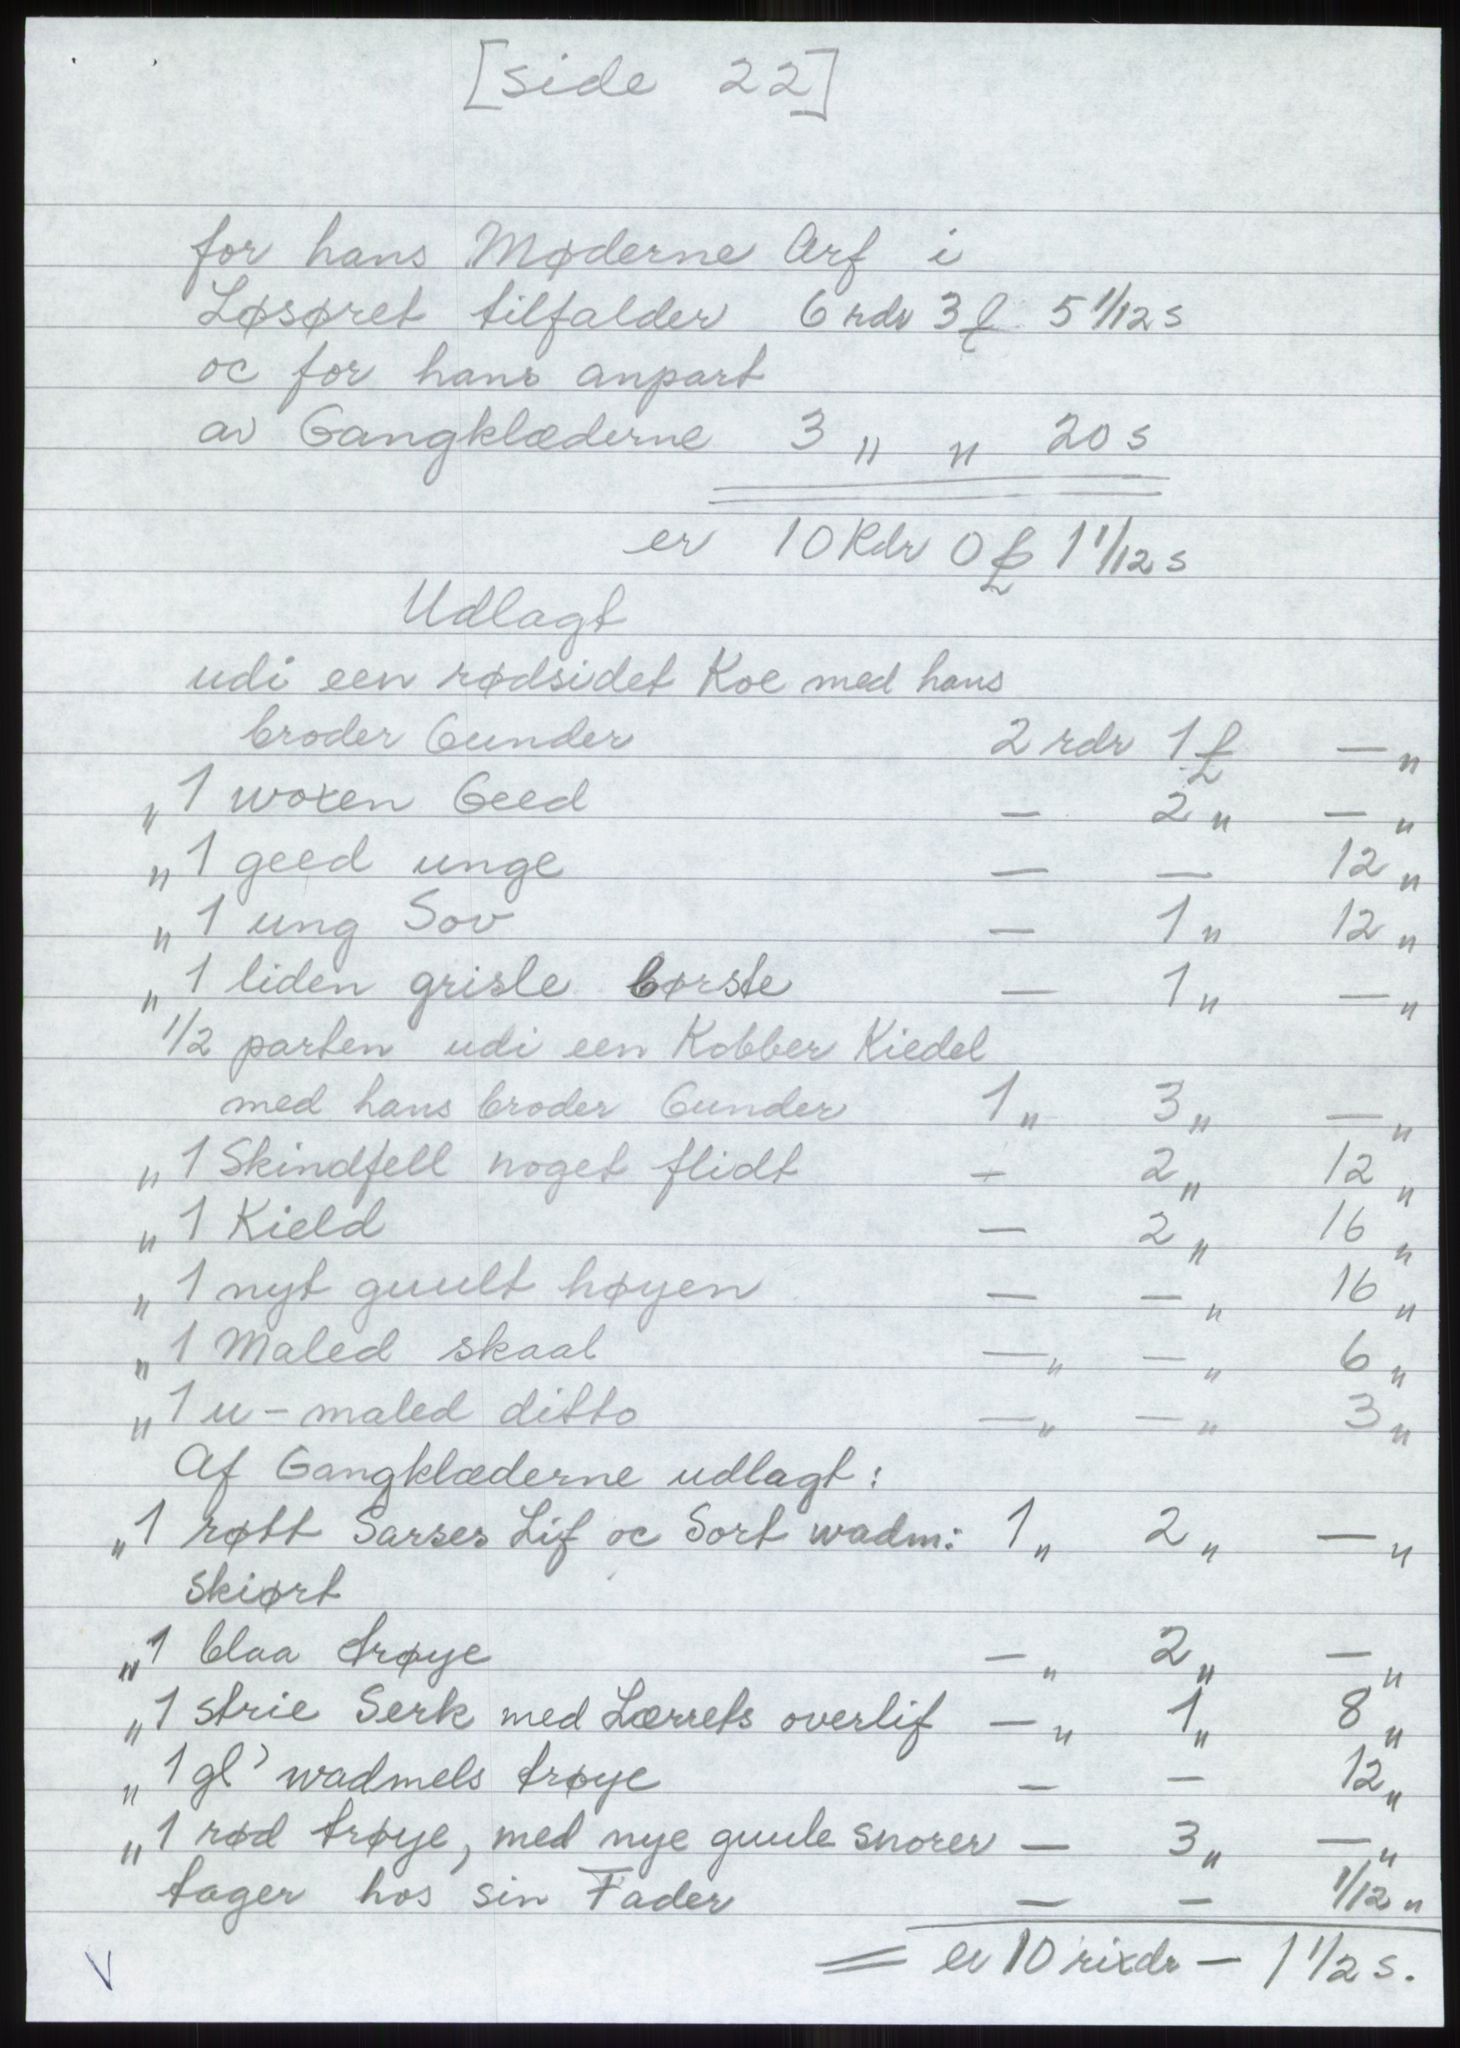 [side 22]
for hans Møderne Arf i
Løsøret tilfalder 6 rdr 3 ₤ 5 1/12 s
oc for hans anpart
av Gangklæderne 3 " " 20 s
er 10 Rdr 0 ₤ 1 1/12 s
Udlagt
udi een rødsidet Koe med hans
broder Gunder 2 rdr 1 ₤ — "
" 1 woxen Geed — 2 " — "
" 1 geed unge — — 12 "
" 1 ung Sov — 1 " 12 "
" 1 liden grisle børste — 1 " — "
1/2 parten udi een Kobber Kiedel
med hans broder Gunder 1 " 3 " — "
" 1 Skindfell noget flidt — 2 " 12 "
" 1 Kield — 2 " 16 "
" 1 nyt guult høyen — — " 16 "
" 1 Maled skaal — " — " 6 "
" 1 u-maled ditto — " — " 3 "
Af Gangklæderne udlagt:
" 1 røtt Sarses Lif oc Sort wadm: 1 " 2 " — "
skiørt
" 1 blaa trøye — " 2 " — "
" 1 strie Serk med Lærrets overlif — " 1 " 8 "
" 1 gl' wadmels trøye — — 12 "
" 1 rød trøye, med nye guule snorer — 3 " — "
tager hos sin Fader — — 1/12 "
= er 10 rixdr — 1 1/2 s.
V